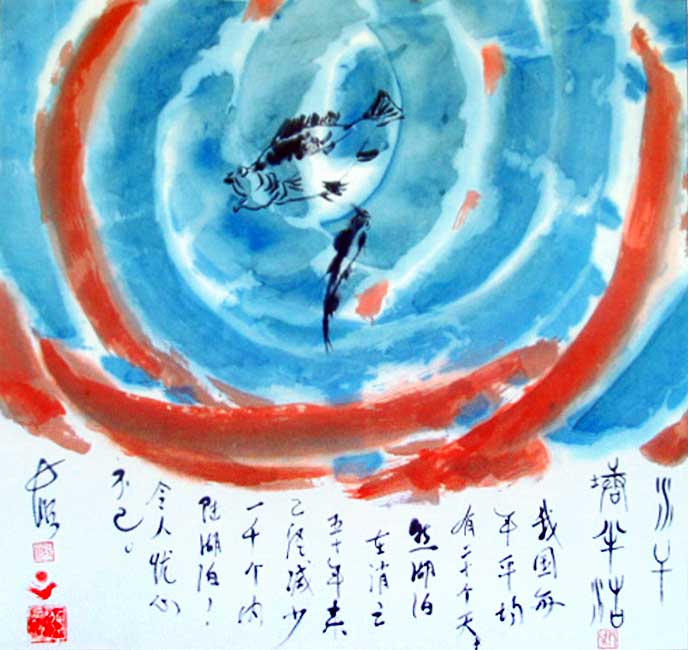 我国每
年平均
有二十个天
然湖泊
在消亡
五十年来
已经减少
一千个内
陆湖泊！
令人忧心
不已。